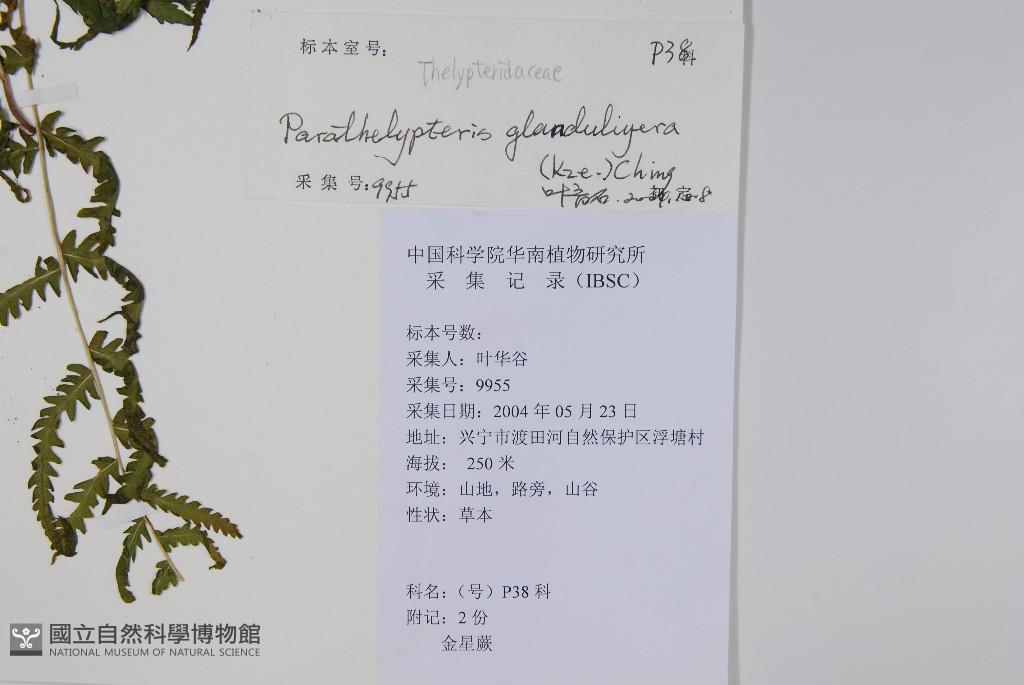 标本室号:
P38科
Thelypteridaceae
Parathelypteris glanduliyera
(Kze.) Ching
采集号:9955
中国科学院华南植物研究所
采 集 记 录（IBSC）
标本号数:
采集人: 叶华谷
采集号: 9955
采集日期: 2004 年 05 月 23 日
地址: 兴宁市渡田河自然保护区浮塘村
海拔: 250 米
环境: 山地，路旁，山谷
性状: 草本
科名:（号）P38 科
附记: 2 份
金星蕨
國立自然科學博物館
NATIONAL MUSEUM OF NATURAL SCIENCE